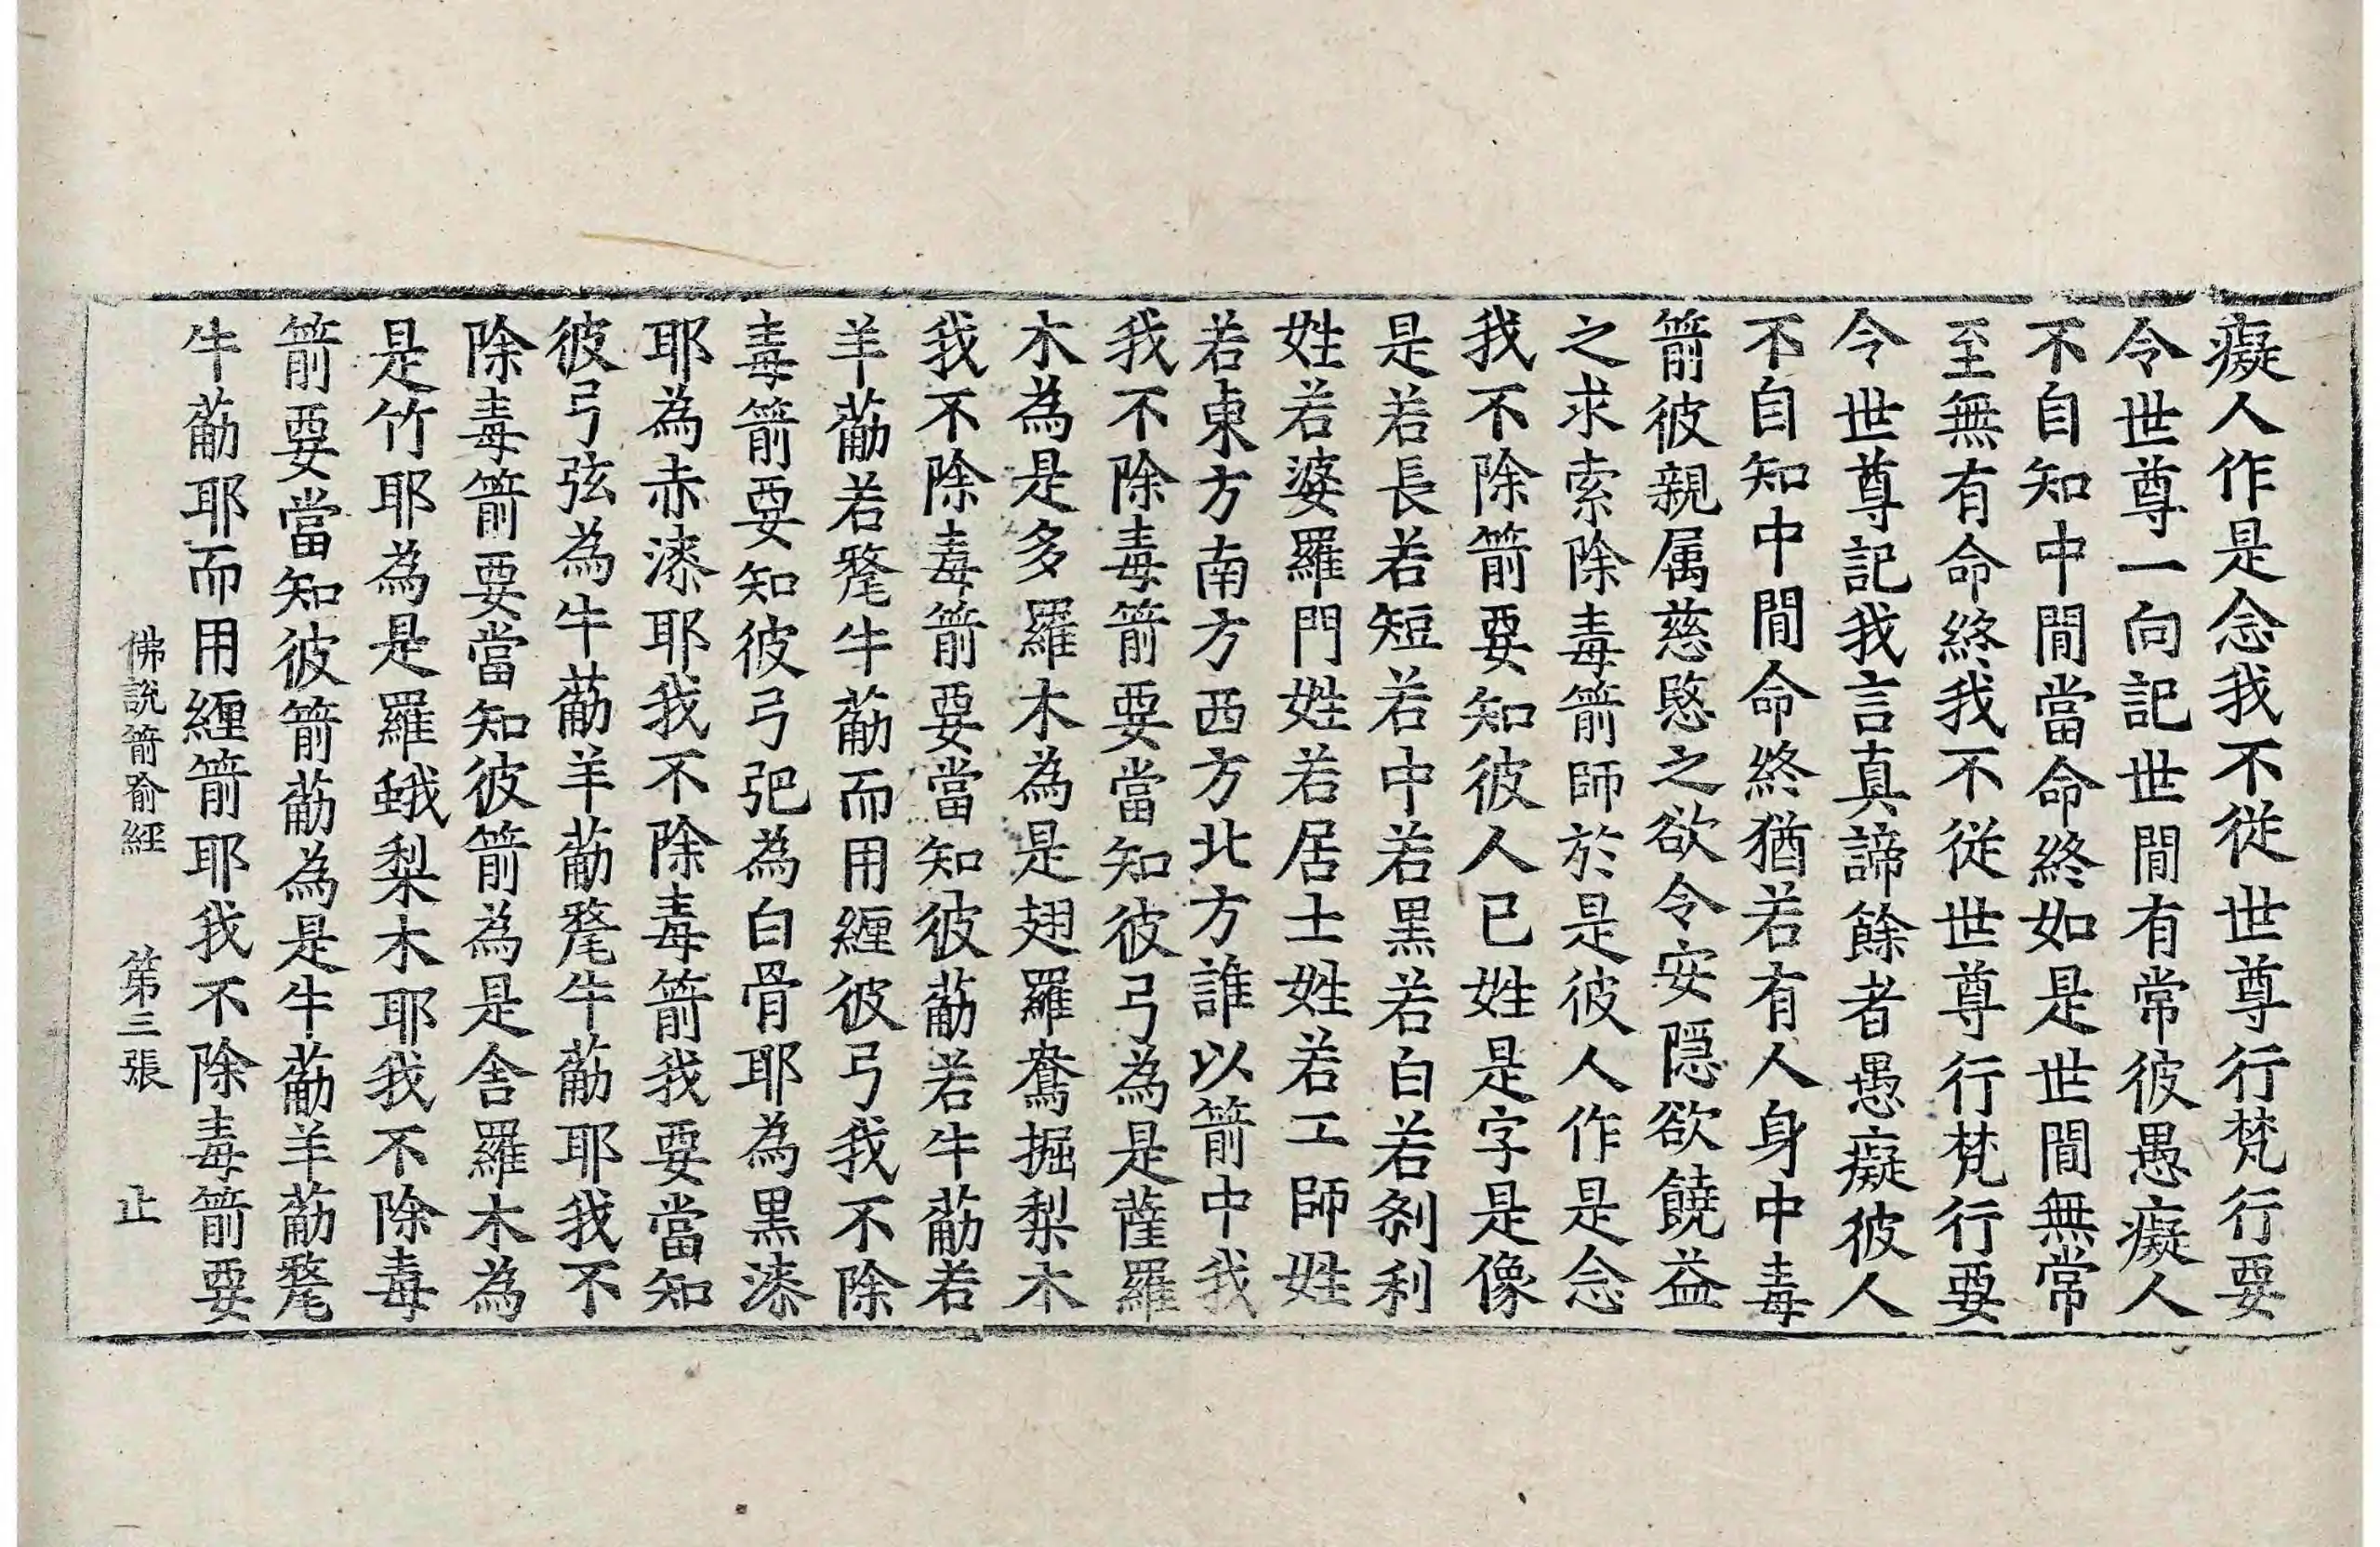 癡人作是念我不從世尊行梵行要
令世尊一向記世閒有常彼愚癡人
不自知中閒當命終如是世閒無常
至無有命終我不從世尊行梵行要
令世尊記我言真諦餘者愚癡彼人
不自知中閒命終猶若有人身中毒
箭彼親属慈愍之欲令安隠欲饒益
之求索除毒箭師於是彼人作是念
我不除箭要知彼人已姓是字是像
是若長若短若中若黒若白若剎利
姓若婆羅門姓若居士姓若工師姓
若東方南方西方北方誰以箭中我
我不除毒箭要當知彼弓為是薩羅
木為是多羅木為是翅羅鴦掘梨木
我不除毒箭要當知彼葪若牛葪若
羊葪若氂牛葪而用纒彼弓我不除
毒箭要知彼弓弝為白骨耶為黒漆
耶為赤漆耶我不除毒箭我要當知
彼弓弦為牛葪羊葪氂牛葪耶我不
除毒箭要當知彼箭為是舎羅木為
是竹耶為是羅蛾梨木耶我不除毒
箭要當知彼箭葪為是牛葪羊葪氂
牛葪耶而用纒箭耶我不除毒箭要
佛說箭喻經 第三張 止